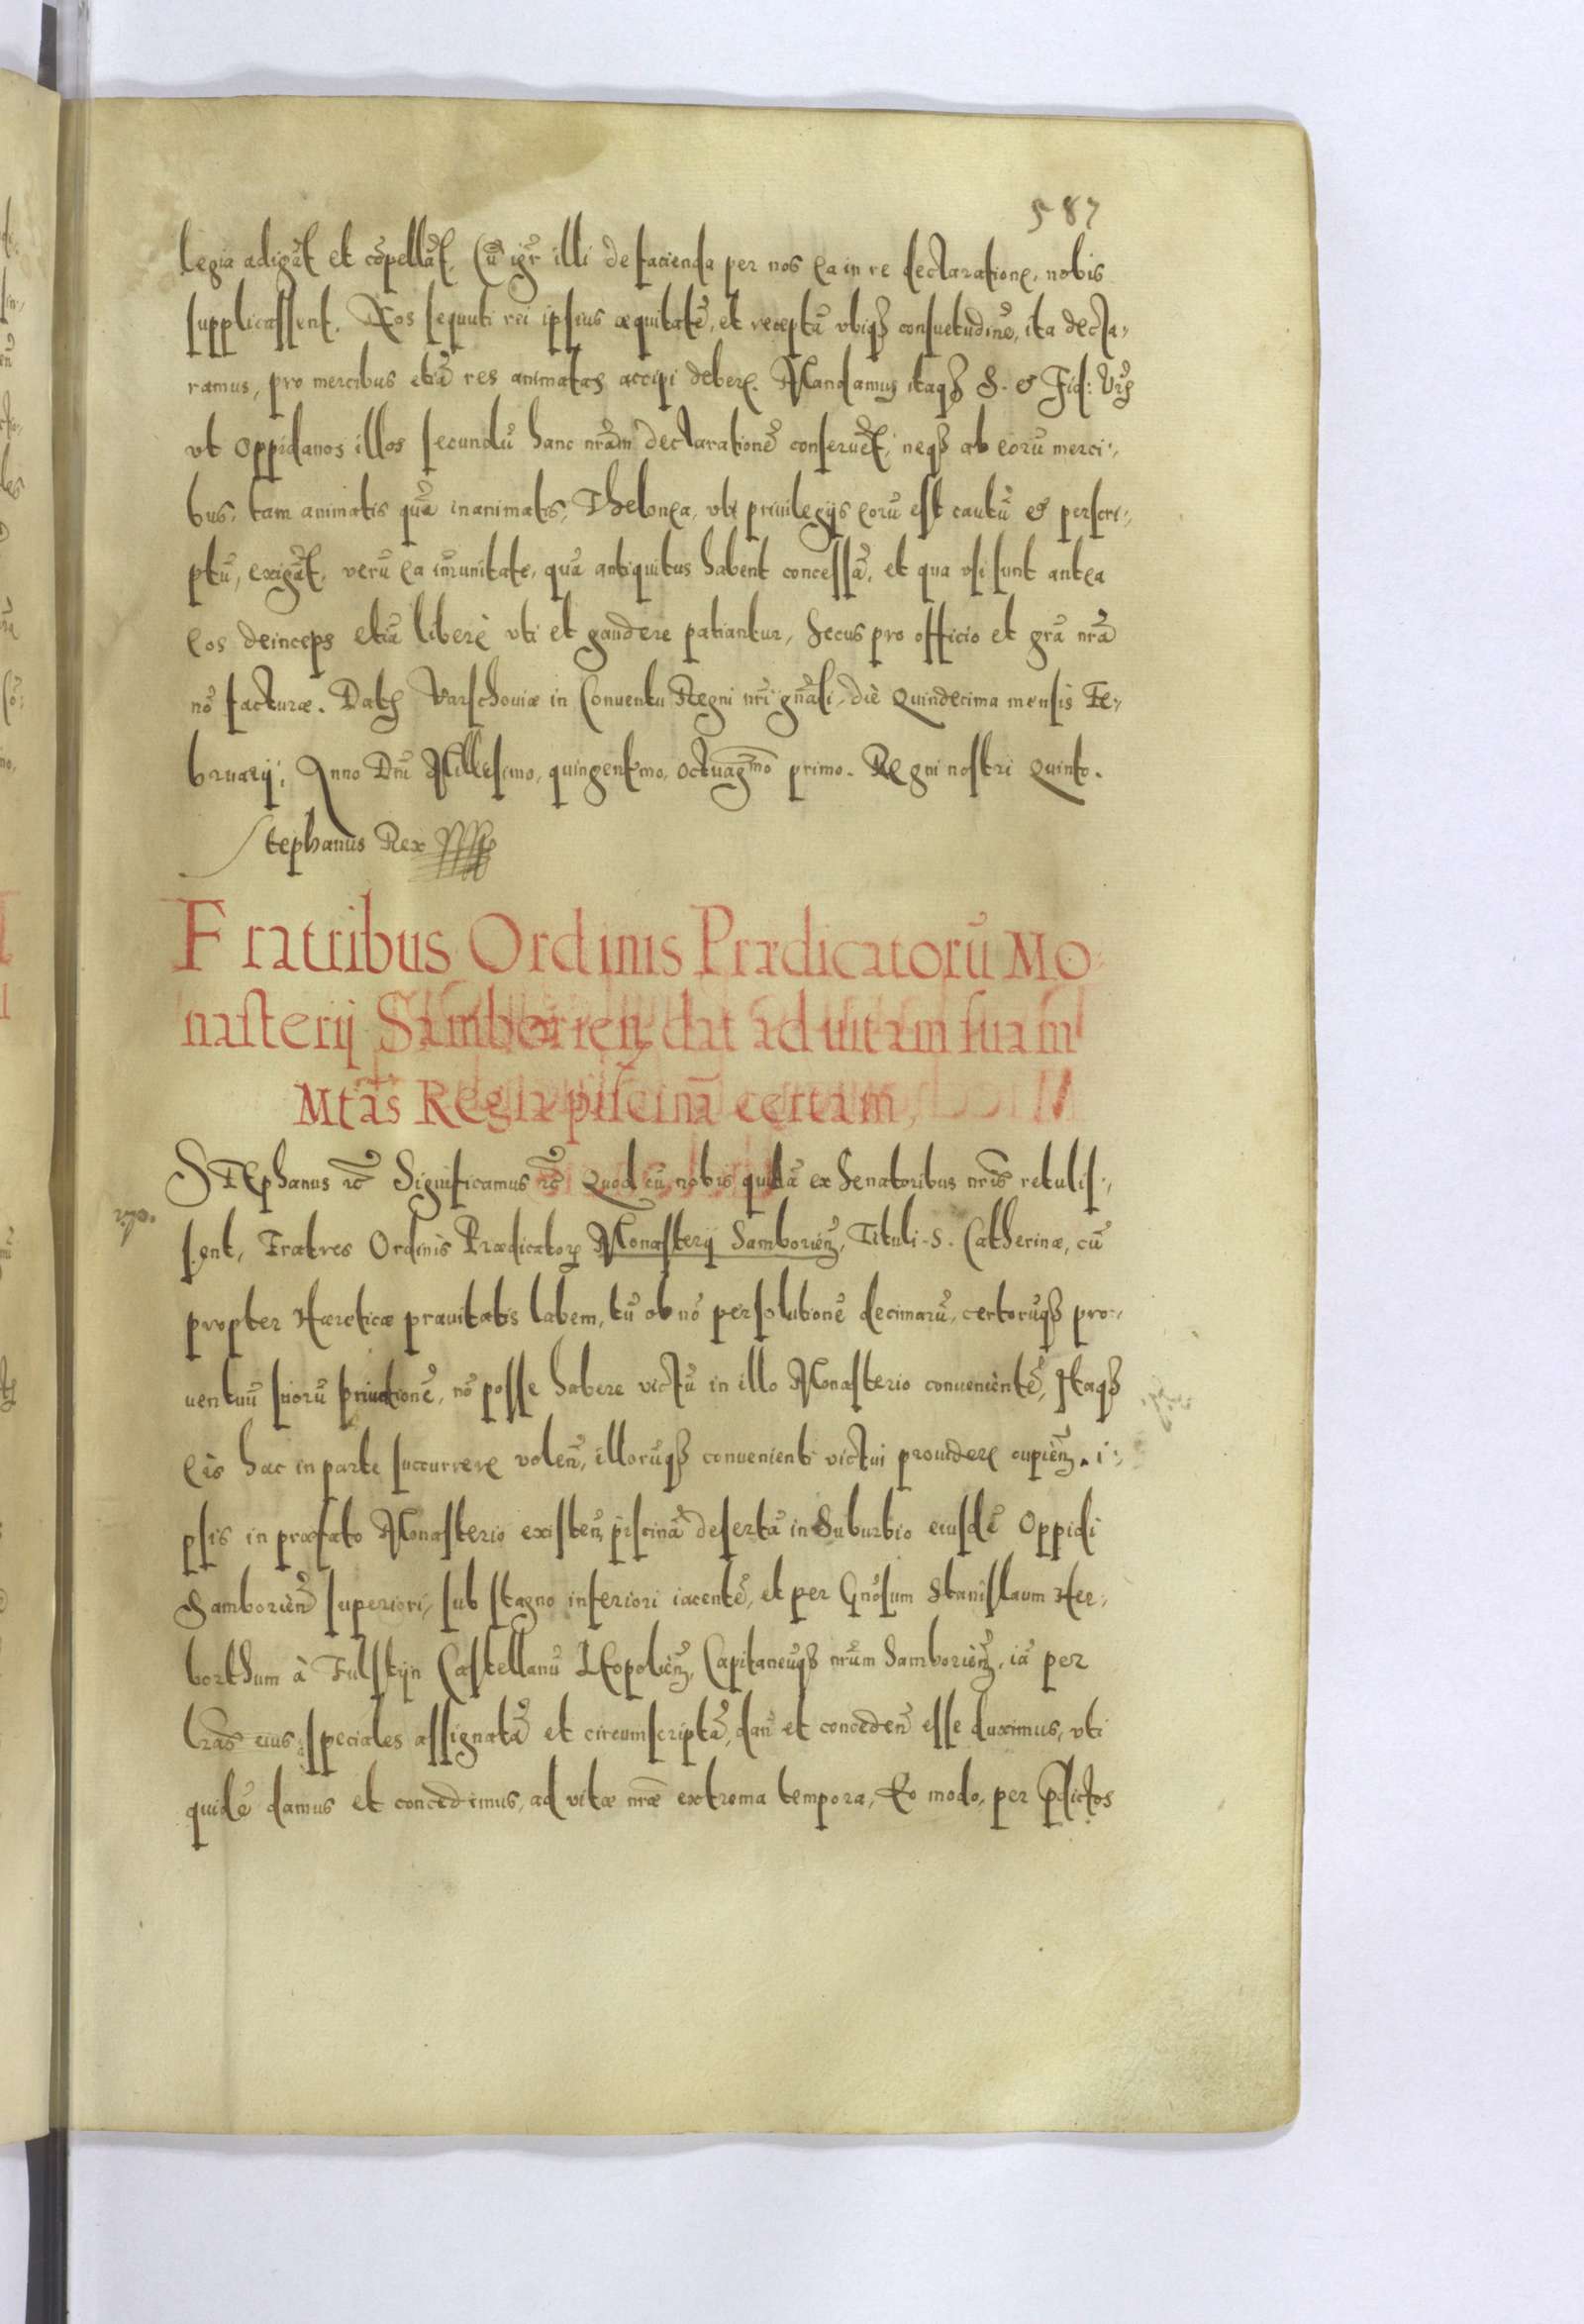 587
legia adigāt et cōpellāt. Cū igr illi de facienda per nos ea in re declaratione, nobis
supplicassent. Nos sequuti rei ipsius æquitatē, et receptā vbiqȝ consuetudinē, ita decla,
ramus, pro mercibus etiā res animatas accipi debere. Mandamus itaqȝ S. & Fid: Vrȩ
vt oppidanos illos secundū hanc nrām declarationē conseruēt, neqȝ ab eorū merci:,
bus, tam animatis quā inanimatis, Thelonea, vbi priuilegijs eorū est cautū & perscri:,
ptū, exigāt, verū ea im̄unitate, quā antiquitus habent concessā, et qua vsi sunt antea
eos deinceps etiā liberè vti et gaudere patiantur, Secus pro officio et grā nrā
nō facturæ. Datȩ Varschouiæ in Conuentu Regni nri gnāli, diè Quindecima mensis Fe:,
bruarij, Anno Dni Millesimo, quingentmo, octuagmo primo. Regni nostri Quinto.
Stephanus Rex
Fratribus Ordinis Prædicatorū Mo:
nasterij Samborienȝ dat ad uitam suam
Mtās Regia piscinā certam,
Stephanus rc̄ Significamus rc̄ Quod cū nobis quidā ex Senatoribus nrīs retulis:,
sent, Fratres Ordinis Prædicatorꝝ Monasterij Samborienȝ, Tituli S. Catherinæ, cū
propter Hæreticæ prauitatis labem, tū ob nō persolutionē decimarū, certorūqȝ pro:,
uentuū suorū priuationē, nō posse habere victū in illo Monasterio conuenièntē, Itaqȝ
eis hac in parte succurrere volen̄, illorūqȝ conuenienti victui prouidere cupienȝ. i:,
psis in præfato Monasterio existenȝ, piscinā desertā in Suburbio eiusdē Oppidi
Samborien̄ superiori, sub stagno inferiori iacentē, et per Gnōsum Stanislaum Her:,
borthum à Fulstijn Castellanū Leopolienȝ, Capitaneūqȝ nrūm Samborienȝ, iā per
lrās eius speciales assignatā et circumscriptā, dan̄ et conceden̄ esse duximus, vti
quidē damus et concedimus, ad vitæ nræ extrema tempora, Eo modo, per p̄dictos